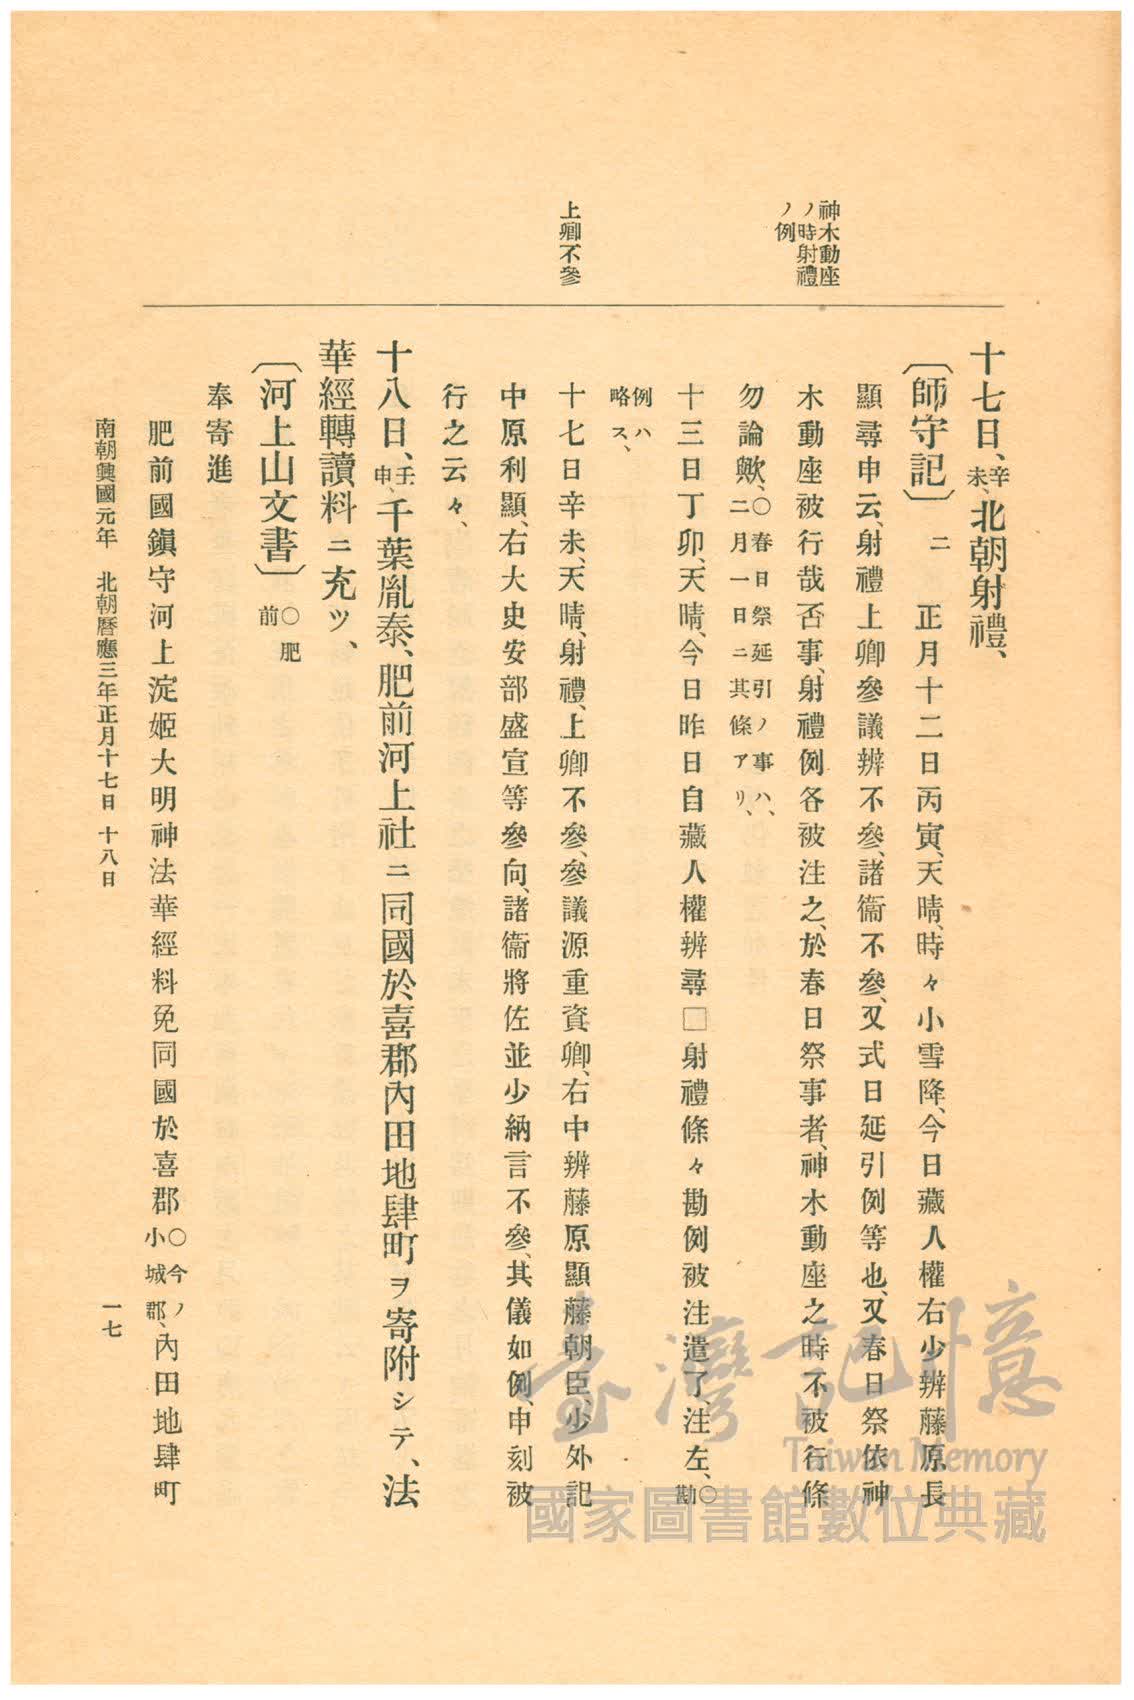 神木動座
ノ時射禮
ノ例
上卿不參
十七日、辛未、北朝射禮、
〔師守記〕二 正月十二日丙寅、天晴、時々小雪降、今日藏人權右少辨藤原長
顯尋申云、射禮上卿參議辨不參、諸衞不參、又式日延引例等也、又春日祭依神
木動座被行哉否事、射禮例各被注之、於春日祭事者、神木動座之時不被行條
勿論歟、○春日祭延引ノ事ハ、二月一日ニ其條アリ、
十三日丁卯、天晴、今日昨日自藏人權辨尋□射禮條々勘例被注遣了、注左、○勘
例ハ略ス、
十七日辛未、天晴、射禮、上卿不參、參議源重資卿、右中辨藤原顯藤朝臣、少外記
中原利顯、右大史安部盛宣等參向、諸衞將佐並少納言不參、其儀如例、申刻被
行之云々、
十八日、壬申、千葉胤泰、肥前河上社ニ同國於喜郡內田地肆町ヲ寄附シテ、法
華經轉讀料ニ充ツ、
〔河上山文書〕○肥前
奉寄進
肥前國鎭守河上淀姬大明神法華經料免同國於喜郡○今ノ小城郡、內田地肆町
南朝興國元年 北朝曆應三年正月十七日 十八日
一七
臺灣記憶
Taiwan Memory
國家圖書館數位典藏